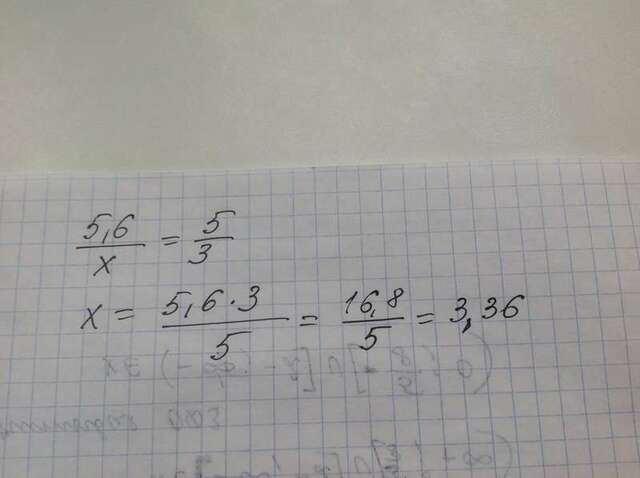 5,6/x = 5/3
x = 5,6·3/5 = 16,8/5 = 3,36